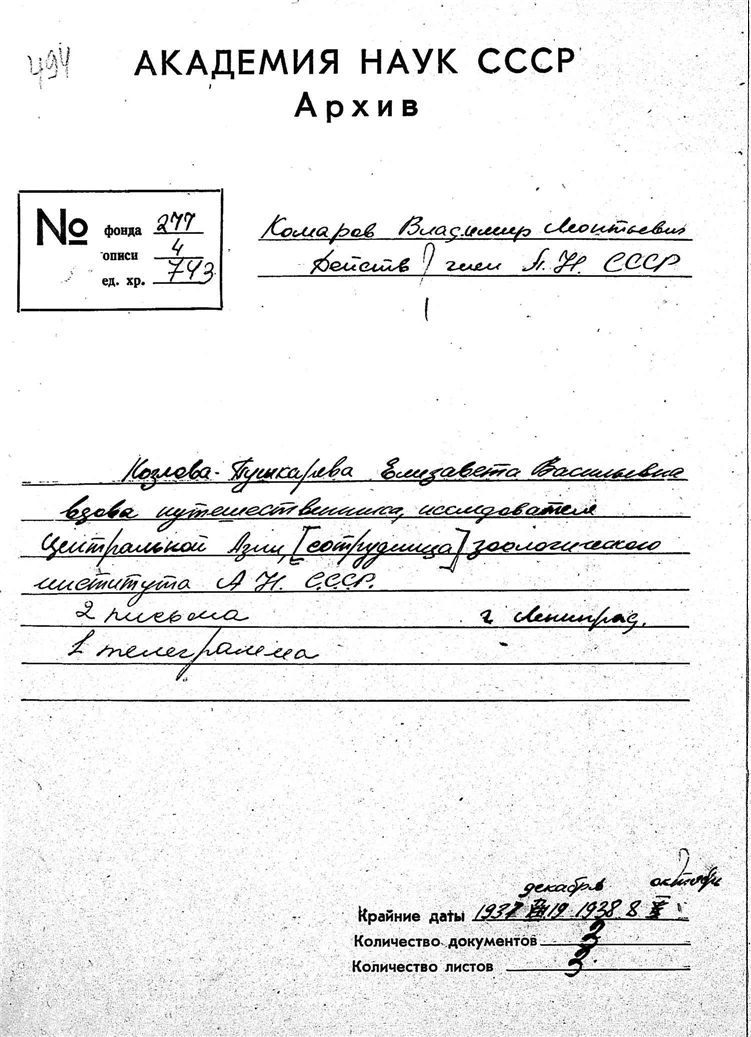 494
АКАДЕМИЯ НАУК СССР
Архив
№ фонда 277
описи 4
ед. хр. 743
Комаров Владимир Леонтьевич
Действ член А. Н. СССР
Козлова-Пушкарева Елизавета Васильевна
вдова путешественника, исследователя
Центральной Азии, [сотрудница] зоологического
института А Н. С.С.С.Р.
2 письма г. Ленинград.
1 телеграмма
декабрь октябрь
Крайние даты 1937 19 1938 8
Количество документов 3
Количество листов 3